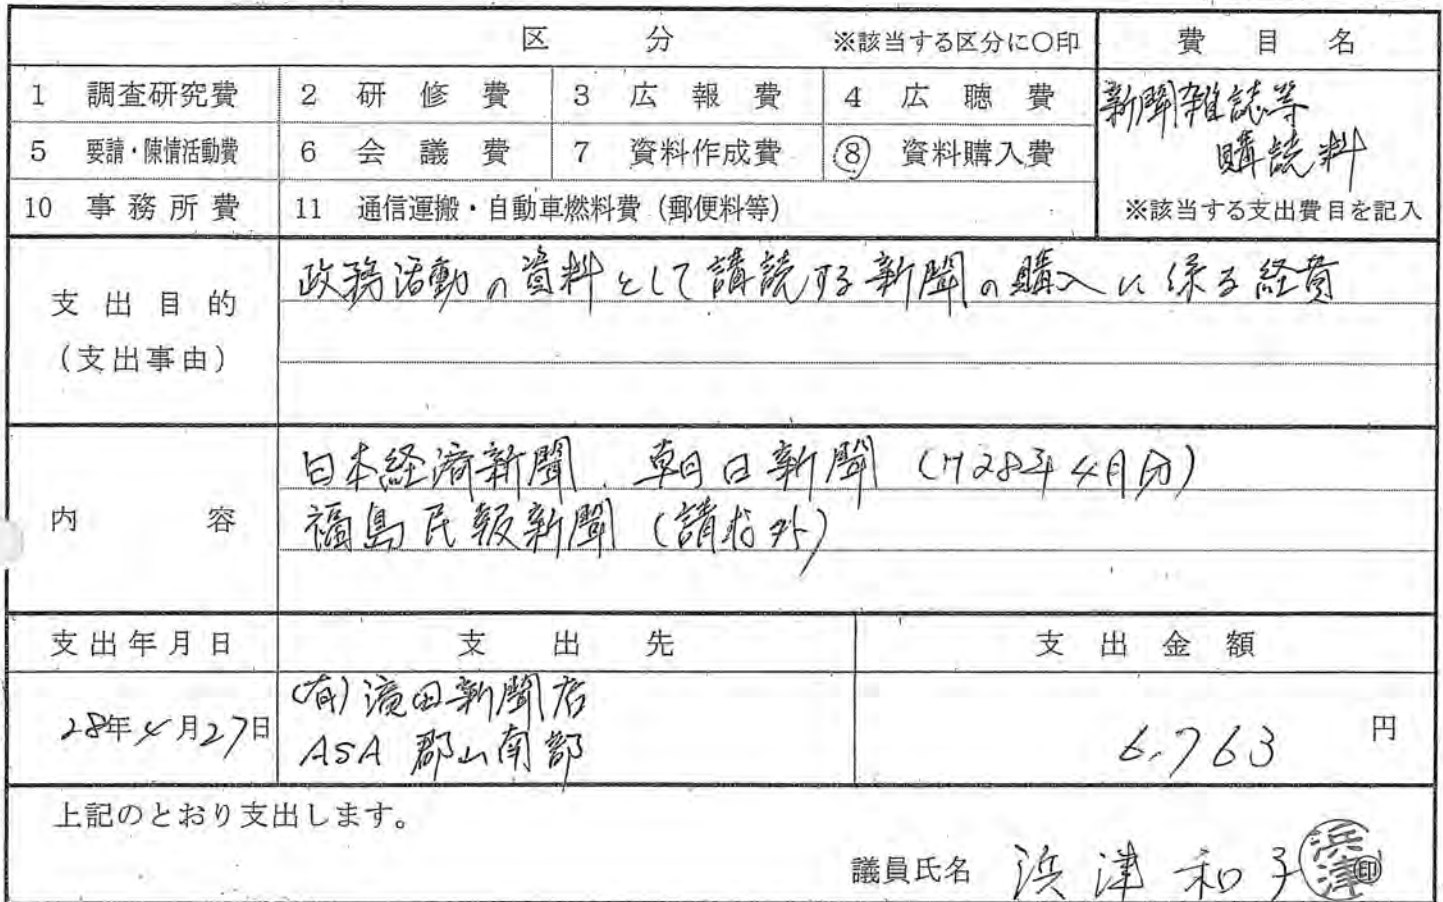 区 分 ※該当する区分に○印
費 目 名
1 調査研究費 2 研 修 費 3 広 報 費 4 広 聴 費
5 要請・陳情活動費 6 会 議 費 7 資料作成費 ⑧ 資料購入費
10 事 務 所 費 11 通信運搬・自動車燃料費（郵便料等）
新聞雑誌等
購読料
※該当する支出費目を記入
支 出 目 的
（支出事由）
政務活動の資料として講読する新聞の購入に係る経費
内 容
日本経済新聞、朝日新聞（H28年4月分）
福島民報新聞（請求外）
支出年月日 支 出 先 支 出 金 額
28年4月27日
(有)濱田新聞店
ASA 郡山南部
6,763 円
上記のとおり支出します。
議員氏名 浜津和子 浜津 印